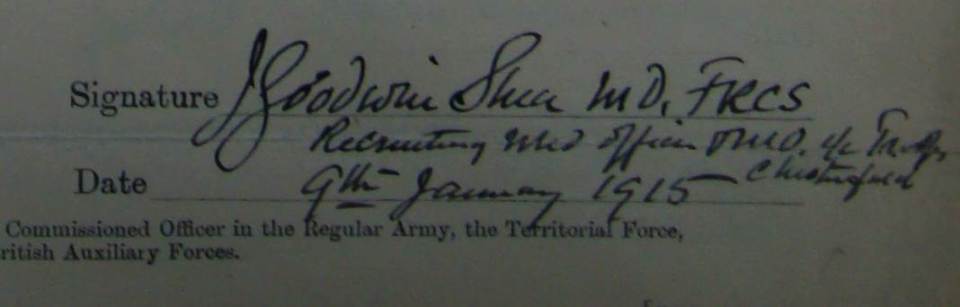 Signature J Goodwin Shea MD, FRCS
Recruiting Med Officer & M.O. i/c Troops
Chesterfield
Date 9th January 1915
Commissioned Officer in the Regular Army, the Territorial Force,
ritish Auxiliary Forces.